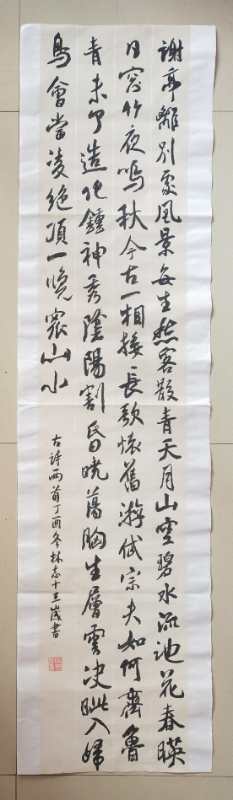 謝亭離別處風景每生愁客散青天月山空碧水流池花春暎
日窓竹夜鳴秋今古一相接長歌懷舊游岱宗夫如何齊魯
青未了造化鍾神秀陰陽割昏曉蕩胸生層雲决眦入歸
鳥會當凌絕頂一覽衆山小
古詩兩首丁酉冬林志十三歲書